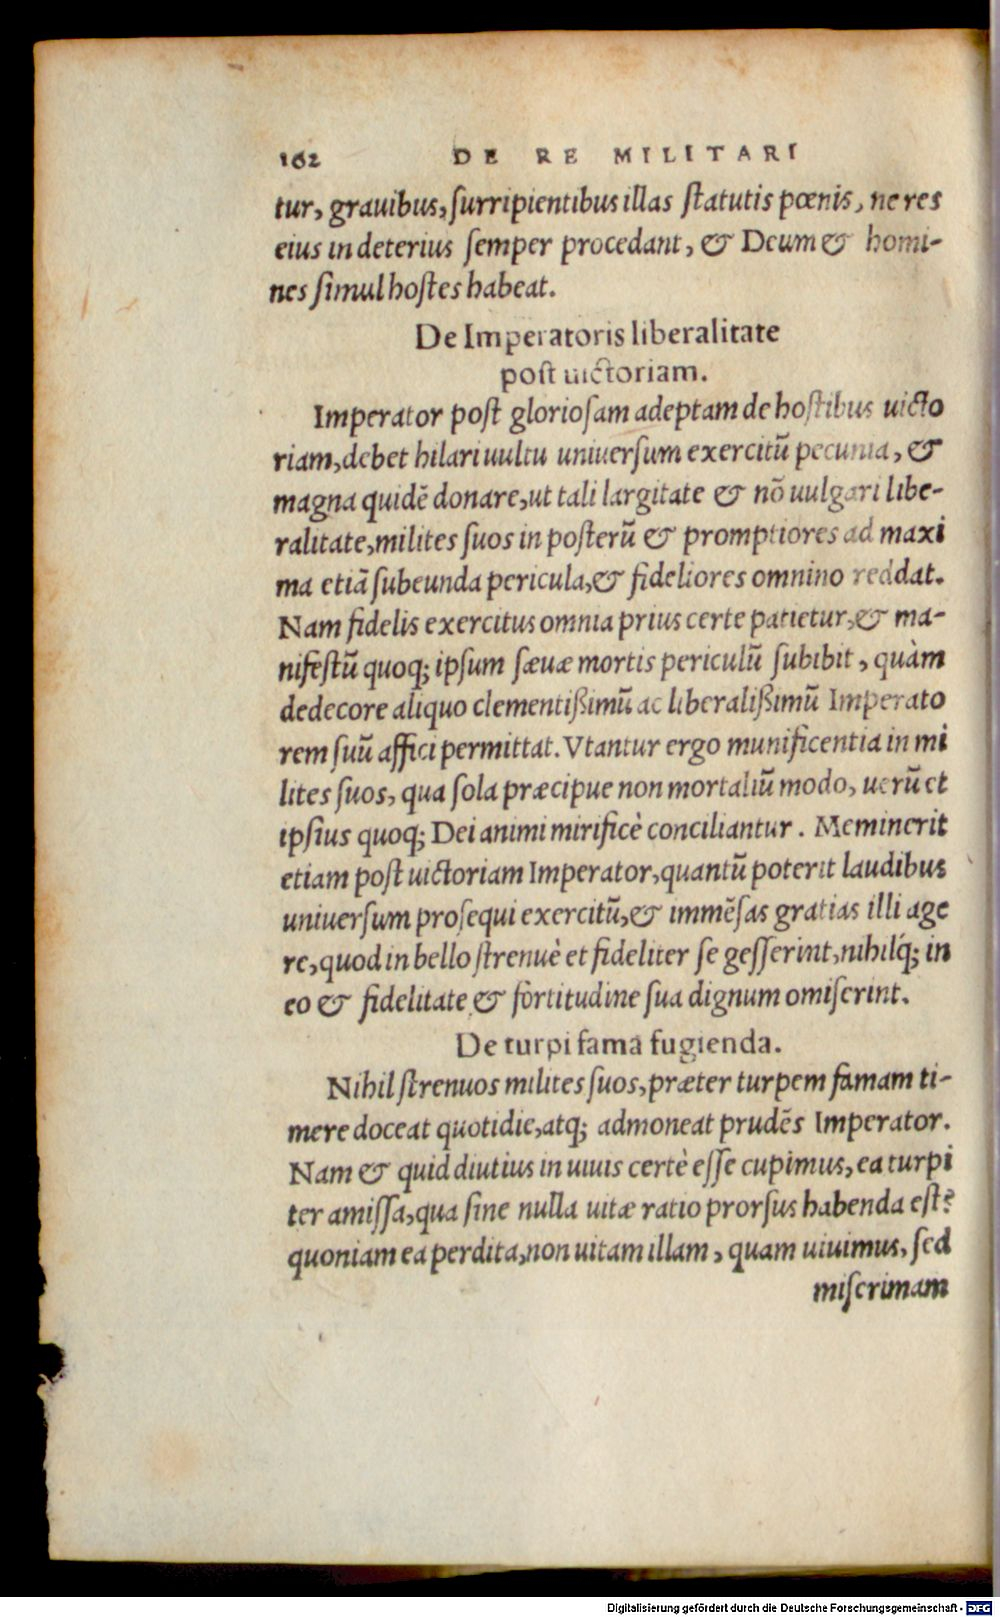 162 DE RE MILITARI
tur, grauibus, surripientibus illas statutis pœnis, ne res
eius in deterius semper procedant, & Deum & homi-
nes simul hostes habeat.
De Imperatoris liberalitate
post uictoriam.
Imperator post gloriosam adeptam de hostibus uicto
riam, debet hilari uultu uniuersum exercitũ pecunia, &
magna quidẽ donare, ut tali largitate & nõ uulgari libe-
ralitate, milites suos in posterũ & promptiores ad maxi
ma etiã subeunda pericula, & fideliores omnino reddat.
Nam fidelis exercitus omnia prius certe patietur, & ma-
nifestũ quoq; ipsum sæuæ mortis periculũ subibit, quàm
dedecore aliquo clementißimũ ac liberalißimũ Imperato
rem suũ affici permittat. Vtantur ergo munificentia in mi
lites suos, qua sola præcipue non mortaliũ modo, uerũ et
ipsius quoq; Dei animi mirificè conciliantur. Meminerit
etiam post uictoriam Imperator, quantũ poterit laudibus
uniuersum prosequi exercitũ, & immẽsas gratias illi age
re, quod in bello strenuè et fideliter se gesserint, nihilq́; in
eo & fidelitate & fortitudine sua dignum omiserint.
De turpi fama fugienda.
Nihil strenuos milites suos, præter turpem famam ti-
mere doceat quotidie, atq; admoneat prudẽs Imperator.
Nam & quid diutius in uiuis certè esse cupimus, ea turpi
ter amissa, qua sine nulla uitæ ratio prorsus habenda est?
quoniam ea perdita, non uitam illam, quam uiuimus, sed
miserimam
Digitalisierung gefördert durch die Deutsche Forschungsgemeinschaft - DFG